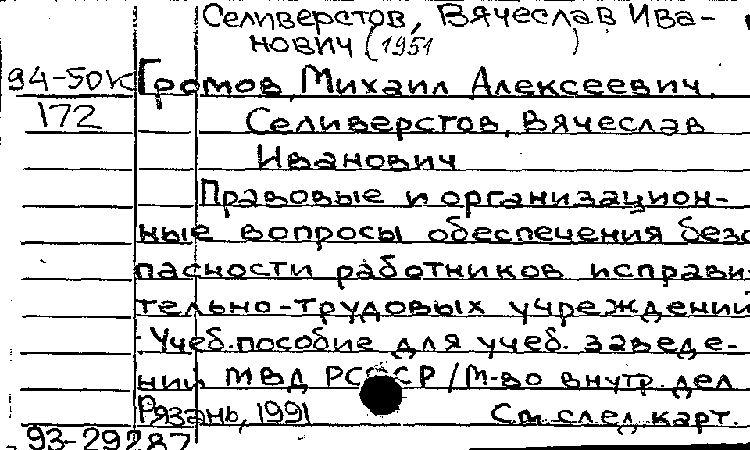 Селиверстов, Вячеслав Ива-
нович (1951 )
94-50К Громов, Михаил Алексеевич.
172 Селиверстов, Вячеслав
Иванович
Правовые и организацион-
ные вопросы обеспечения безо
пасности работников исправи-
тельно-трудовых учреждений
: Учеб. пособие для учеб. заведе-
ний МВД РСФСР / М-во внутр. дел
Рязань, 1991 См. след. карт.
93-29287